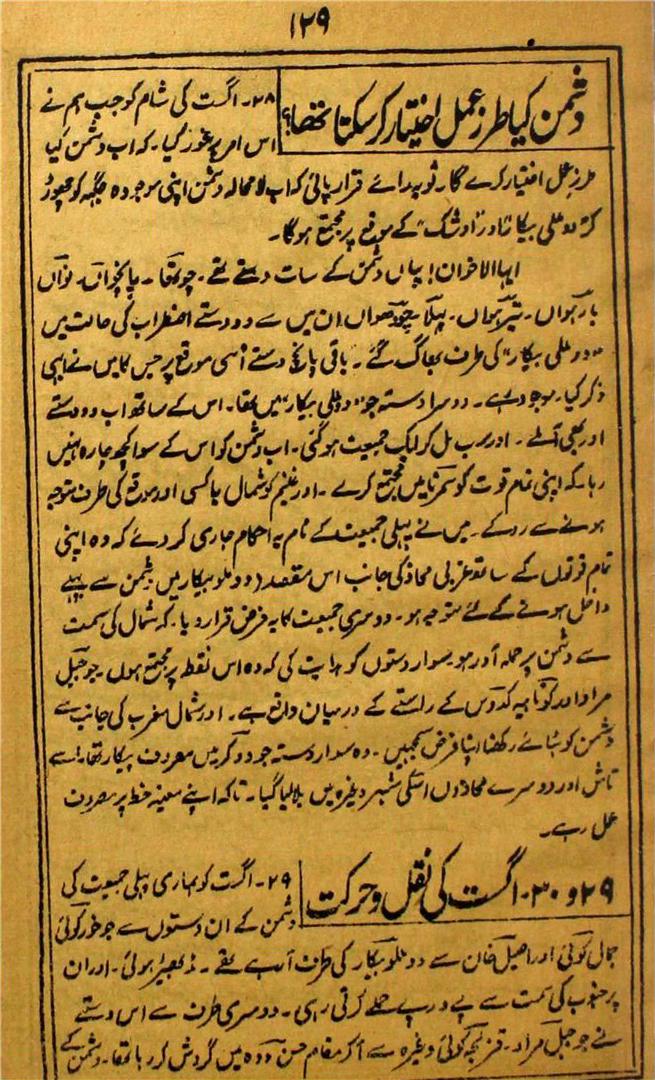 ۱۲۹
دشمن کیا طرز عمل اختیار کر سکتا تھا؟
۲۸۔ اگست کی شام کو جب ہم نے
اس امر پر غور کیا۔ کہ اب دشمن کیا
طرزِ عمل اختیار کرے گا۔ تو یہ رائے قرار پائی کہ اب لا محالہ دشمن اپنی موجودہ جگہ کو چھوڑ
کر دوملی بیکار کے موقع پر مجتمع ہوگا۔
ایہا الاخوان! یہاں دشمن کے سات دستے تھے۔ چوتھا۔ پانچواں۔ نواں
بارہواں۔ تیرہواں۔ پہلا چودھواں ان میں سے دو دستے اضطراب کی حالت میں
"دوملی بیکار" کی طرف بھاگ گئے۔ باقی پانچ دستے اُسی موقع پر جس کا میں نے ابھی
ذکر کیا۔ موجود رہے۔ دوسرا دستہ جو "دوملی بیکار" میں تھا۔ اس کے ساتھ اب دو دستے
اور بھی آملے۔ اور سب مل کر ایک جمعیت ہوگئی۔ اب دشمن کو اس کے سوا کچھ چارہ نہیں
رہا۔ کہ اپنی تمام قوت کو سمرنا میں مجتمع کرے۔ اور غنیم کو شمال یا کسی اور موقع کی طرف متوجہ
ہونے سے روکے۔ میں نے پہلی جمعیت کے نام یہ احکام جاری کر دئے کہ وہ اپنی
تمام قوتوں کے ساتھ غربی محاذ کی جانب اس مقصد (دوملو بیکار میں دشمن سے پہلے
داخل ہونے کے لئے متوجہ ہو۔ دوسری جمعیت کا یہ فرض قرار دیا۔ کہ شمال کی سمت
سے دشمن پر حملہ آور ہو۔ سوار دستوں کو ہدایت کی کہ وہ اس نقطہ پر مجتمع ہوں۔ جو جبل
مراد اور کوتاہیہ کدوس کے راستے کے درمیان واقع ہے۔ اور شمال مغرب کی جانب سے
دشمن کو ہٹائے رکھنا اپنا فرض سمجھیں۔ وہ سوار دستہ جو دوگر میں مصروف پیکار تھا۔ اسے
تاش اور دوسرے محاذوں اسکی شہر وغیرہ میں بلا لیا گیا۔ تاکہ اپنے معینہ خط پر مصروف
عمل رہے۔
۲۹ و ۳۰۔ اگست کی نقل و حرکت
۲۹۔ اگست کو ہماری پہلی جمعیت کی
دشمن کے ان دستوں سے جو خور کوئی
جمال کوئی اور اصیل خان سے دوملو بیکار کی طرف آرہے تھے۔ مڈبھیڑ ہوئی۔ اور ان
پر جنوب کی سمت سے پے در پے حملے کرتی رہی۔ دوسری طرف سے اس دستے
نے جو جبل مراد۔ قزنجہ کوئی وغیرہ سے آکر مقام حسن دوہ میں گردش کر رہا تھا۔ دشمن کے